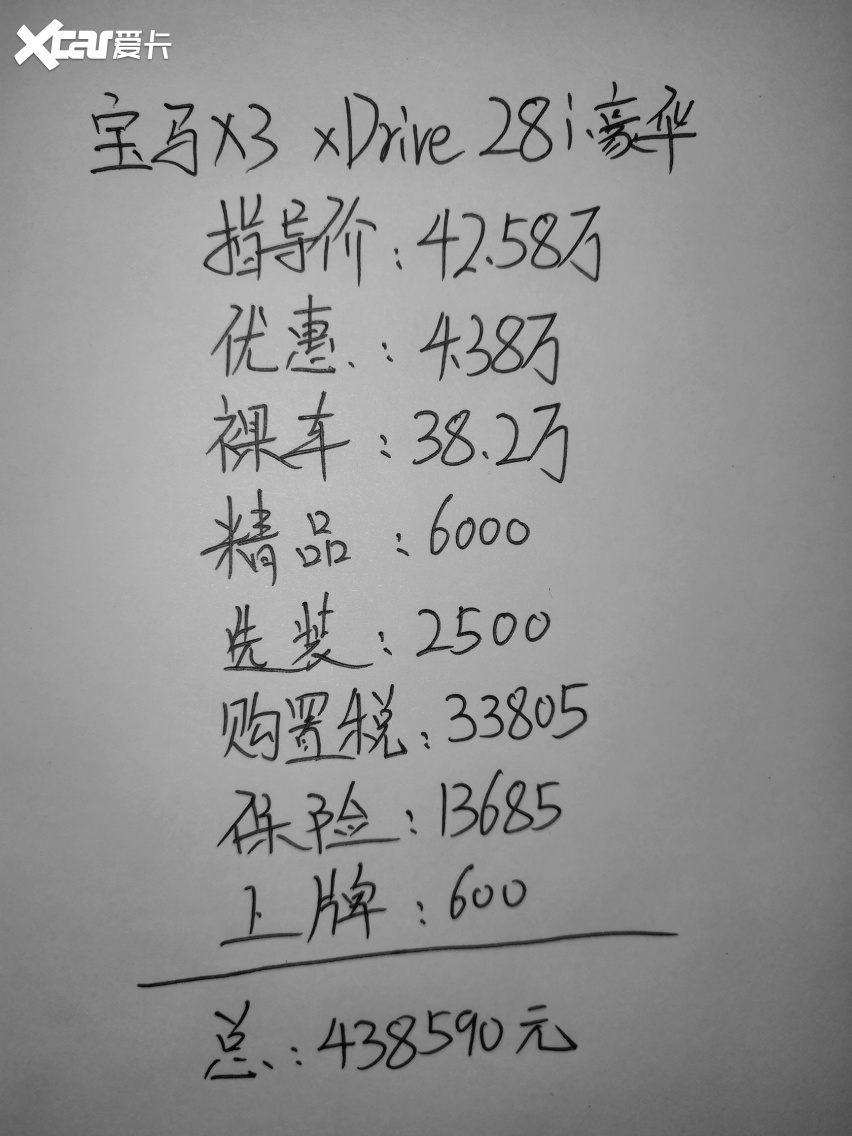 Xcar爱卡
宝马X3 xDrive 28i豪华
指导价:42.58万
优惠:4.38万
裸车:38.2万
精品:6000
选装:2500
购置税:33805
保险:13685
上牌:600
总:438590元